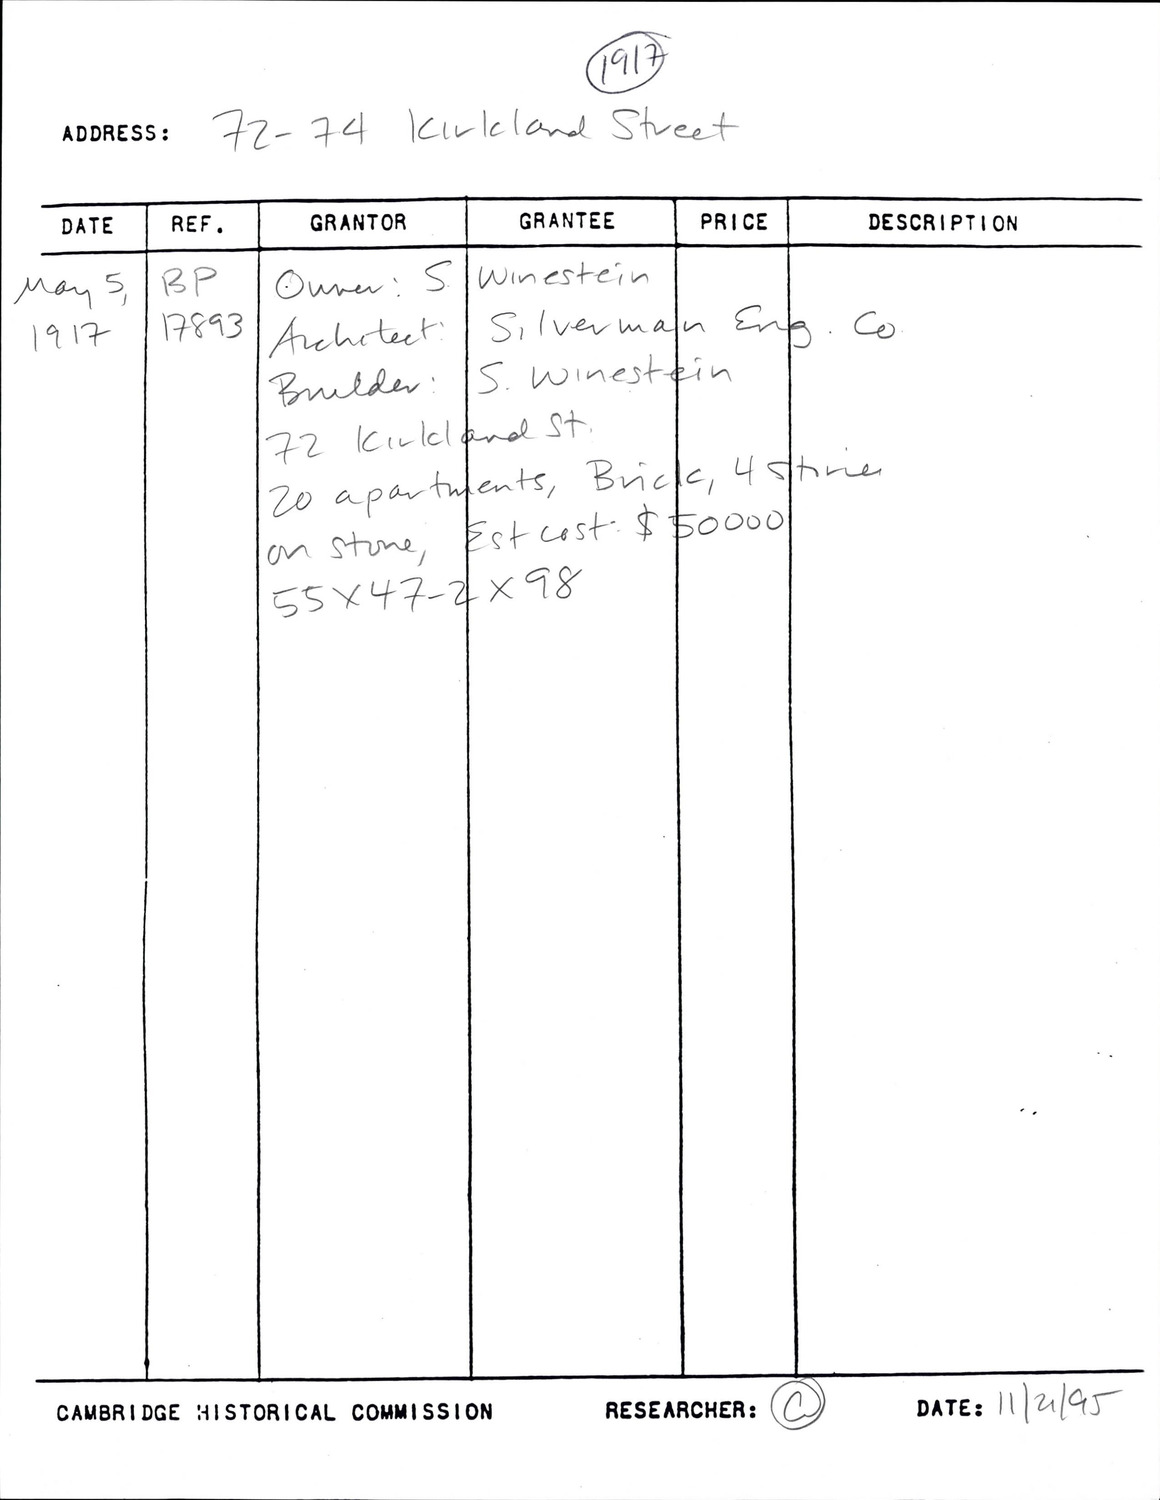 1917
ADDRESS: 72-74 Kirkland Street
DATE REF. GRANTOR GRANTEE PRICE DESCRIPTION
May 5, BP Owner: S. Winestein
1917 17893 Architect: Silverman Eng. Co.
Builder: S. Winestein
72 Kirkland St.
20 apartments, Brick, 4 stories
on stone, Est cost: $50000
55X47-2X98
CAMBRIDGE HISTORICAL COMMISSION RESEARCHER: C DATE: 11/21/95